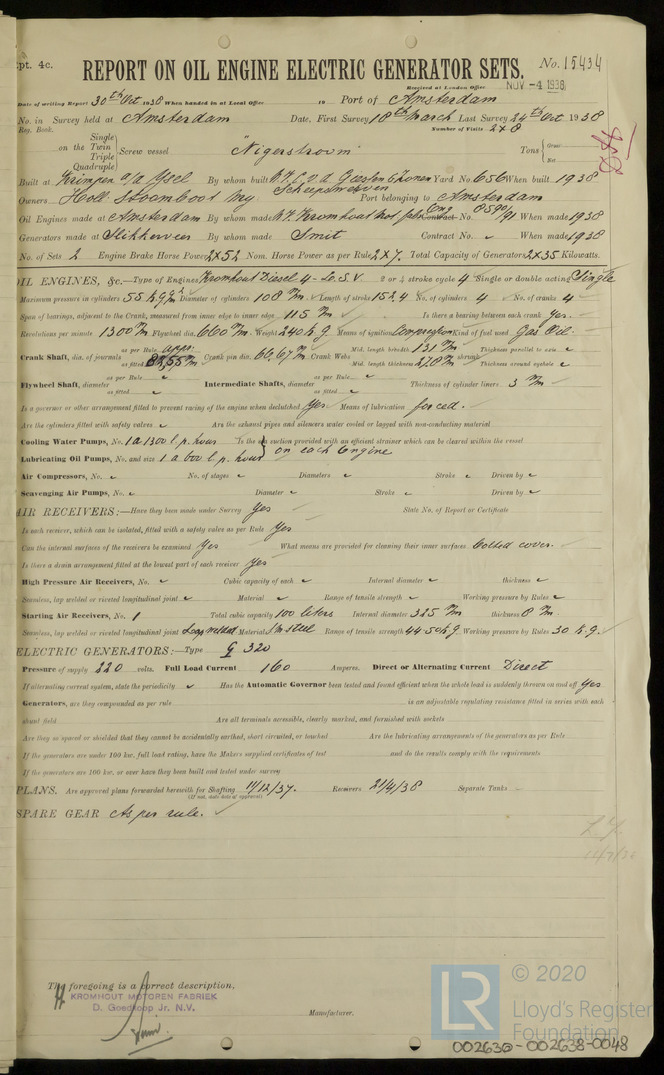 pt. 4c.
REPORT ON OIL ENGINE ELECTRIC GENERATOR SETS. No. 15434
Received at London Office NOV -4 1938
Date of writing Report 30th Oct 1938 When handed in at Local Office 19 Port of Amsterdam
No. in Survey held at Amsterdam Date, First Survey 18th March Last Survey 24th Oct 1938
Reg. Book. Number of Visits 2x8
Single
on the Twin Screw vessel "Nigerstroom" Tons Gross
Triple Net
Quadruple
Built at Krimpen a/d Ysel By whom built N.V. C. v.d. Giessen & Zonen Scheepswerven Yard No. 656 When built 1938
Owners Holl. Stoomboot My Port belonging to Amsterdam
Oil Engines made at Amsterdam By whom made N.V. Kromhout Mot. fabr. Eng. Contract No. 8590/91 When made 1938
Generators made at Slikkerveer By whom made Smit Contract No. When made 1938
No. of Sets 2 Engine Brake Horse Power 2x52 Nom. Horse Power as per Rule 2x7. Total Capacity of Generators 2x35 Kilowatts.
OIL ENGINES, &c.—Type of Engines Kromhout Diesel 4-Lo.S.V 2 or 4 stroke cycle 4 Single or double acting Single
Maximum pressure in cylinders 55 K.g/m² Diameter of cylinders 108 m/m Length of stroke 152,4 No. of cylinders 4 No. of cranks 4
Span of bearings, adjacent to the Crank, measured from inner edge to inner edge 115 m/m Is there a bearing between each crank Yes.
Revolutions per minute 1300 Flywheel dia. 660 m/m. Weight 240 K.g. Means of ignition Compression Kind of fuel used Gas Oil.
Crank Shaft, dia. of journals as per Rule appr. as fitted 82,55 m/m Crank pin dia. 66,67 m/m Crank Webs Mid. length breadth 131 m/m Mid. length thickness 27,8 m/m shrunk Thickness parallel to axis Thickness around eyehole
Flywheel Shaft, diameter as per Rule as fitted Intermediate Shafts, diameter as per Rule as fitted Thickness of cylinder liners 3 m/m
Is a governor or other arrangement fitted to prevent racing of the engine when declutched Yes Means of lubrication forced.
Are the cylinders fitted with safety valves Are the exhaust pipes and silencers water cooled or lagged with non-conducting material
Cooling Water Pumps, No. 1 a 1300 l. p. hour Is the sea suction provided with an efficient strainer which can be cleared within the vessel
Lubricating Oil Pumps, No. and size 1 a 600 l. p. hour on each Engine
Air Compressors, No. No. of stages Diameters Stroke Driven by
Scavenging Air Pumps, No. Diameter Stroke Driven by
AIR RECEIVERS:—Have they been made under Survey Yes State No. of Report or Certificate
Is each receiver, which can be isolated, fitted with a safety valve as per Rule Yes
Can the internal surfaces of the receivers be examined Yes What means are provided for cleaning their inner surfaces bolted cover.
Is there a drain arrangement fitted at the lowest part of each receiver Yes
High Pressure Air Receivers, No. Cubic capacity of each Internal diameter thickness
Seamless, lap welded or riveted longitudinal joint Material Range of tensile strength Working pressure by Rules
Starting Air Receivers, No. 1 Total cubic capacity 100 liters Internal diameter 325 m/m thickness 8 m/m.
Seamless, lap welded or riveted longitudinal joint Lapp welded Material S.M. steel Range of tensile strength 44-50 K.g. Working pressure by Rules 30 K.g.
ELECTRIC GENERATORS:—Type G 320
Pressure of supply 220 volts. Full Load Current 160 Amperes. Direct or Alternating Current Direct
If alternating current system, state the periodicity Has the Automatic Governor been tested and found efficient when the whole load is suddenly thrown on and off Yes
Generators, are they compounded as per rule is an adjustable regulating resistance fitted in series with each
shunt field Are all terminals accessible, clearly marked, and furnished with sockets
Are they so spaced or shielded that they cannot be accidentally earthed, short circuited, or touched Are the lubricating arrangements of the generators as per Rule
If the generators are under 100 kw. full load rating, have the Makers supplied certificates of test and do the results comply with the requirements
If the generators are 100 kw. or over have they been built and tested under survey
PLANS. Are approved plans forwarded herewith for Shafting 11/12/37. Receivers 21/4/38 Separate Tanks
(If not, state date of approval)
SPARE GEAR As per rule.
The foregoing is a correct description,
KROMHOUT MOTOREN FABRIEK
D. Goedkoop Jr. N.V.
Manufacturer.
LR © 2020
Lloyd's Register
Foundation
002630-002638-0048